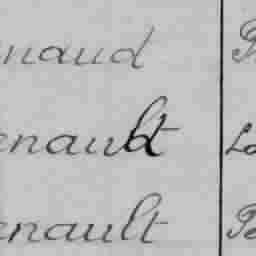 naud
enault
enault